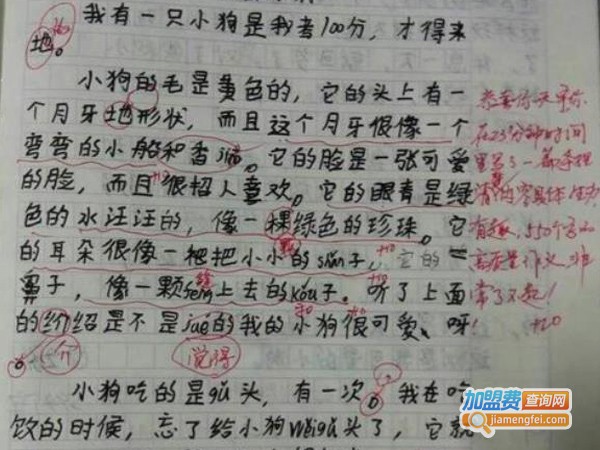 我有一只小狗是我考100分，才得来
地。
的
小狗的毛是黄色的，它的头上有一
个月牙地形状，而且这个月牙很像一个
弯弯的小船和香蕉。它的脸是一张可爱
的脸，而且很招人喜欢。它的眼青是绿
色的水汪汪的，像一棵绿色的珍珠。它
的耳朵很像一把把小小的sàn子，它的
鼻子，像一颗féng上去的kòu子。听了上面
的价绍是不是jué的我的小狗很可爱、呀
。
介
觉得
小狗吃的是gǔ头，有一次。我在吃
饮的时候，忘了给小狗wèigǔ头了，它就
恭喜你
在25分钟时间
里写了一篇条理
清
具体生动
有趣，550个字的
高质量作文，非
常了不起！
+20
+10
+10
加盟费查询网
jiamengfei.com